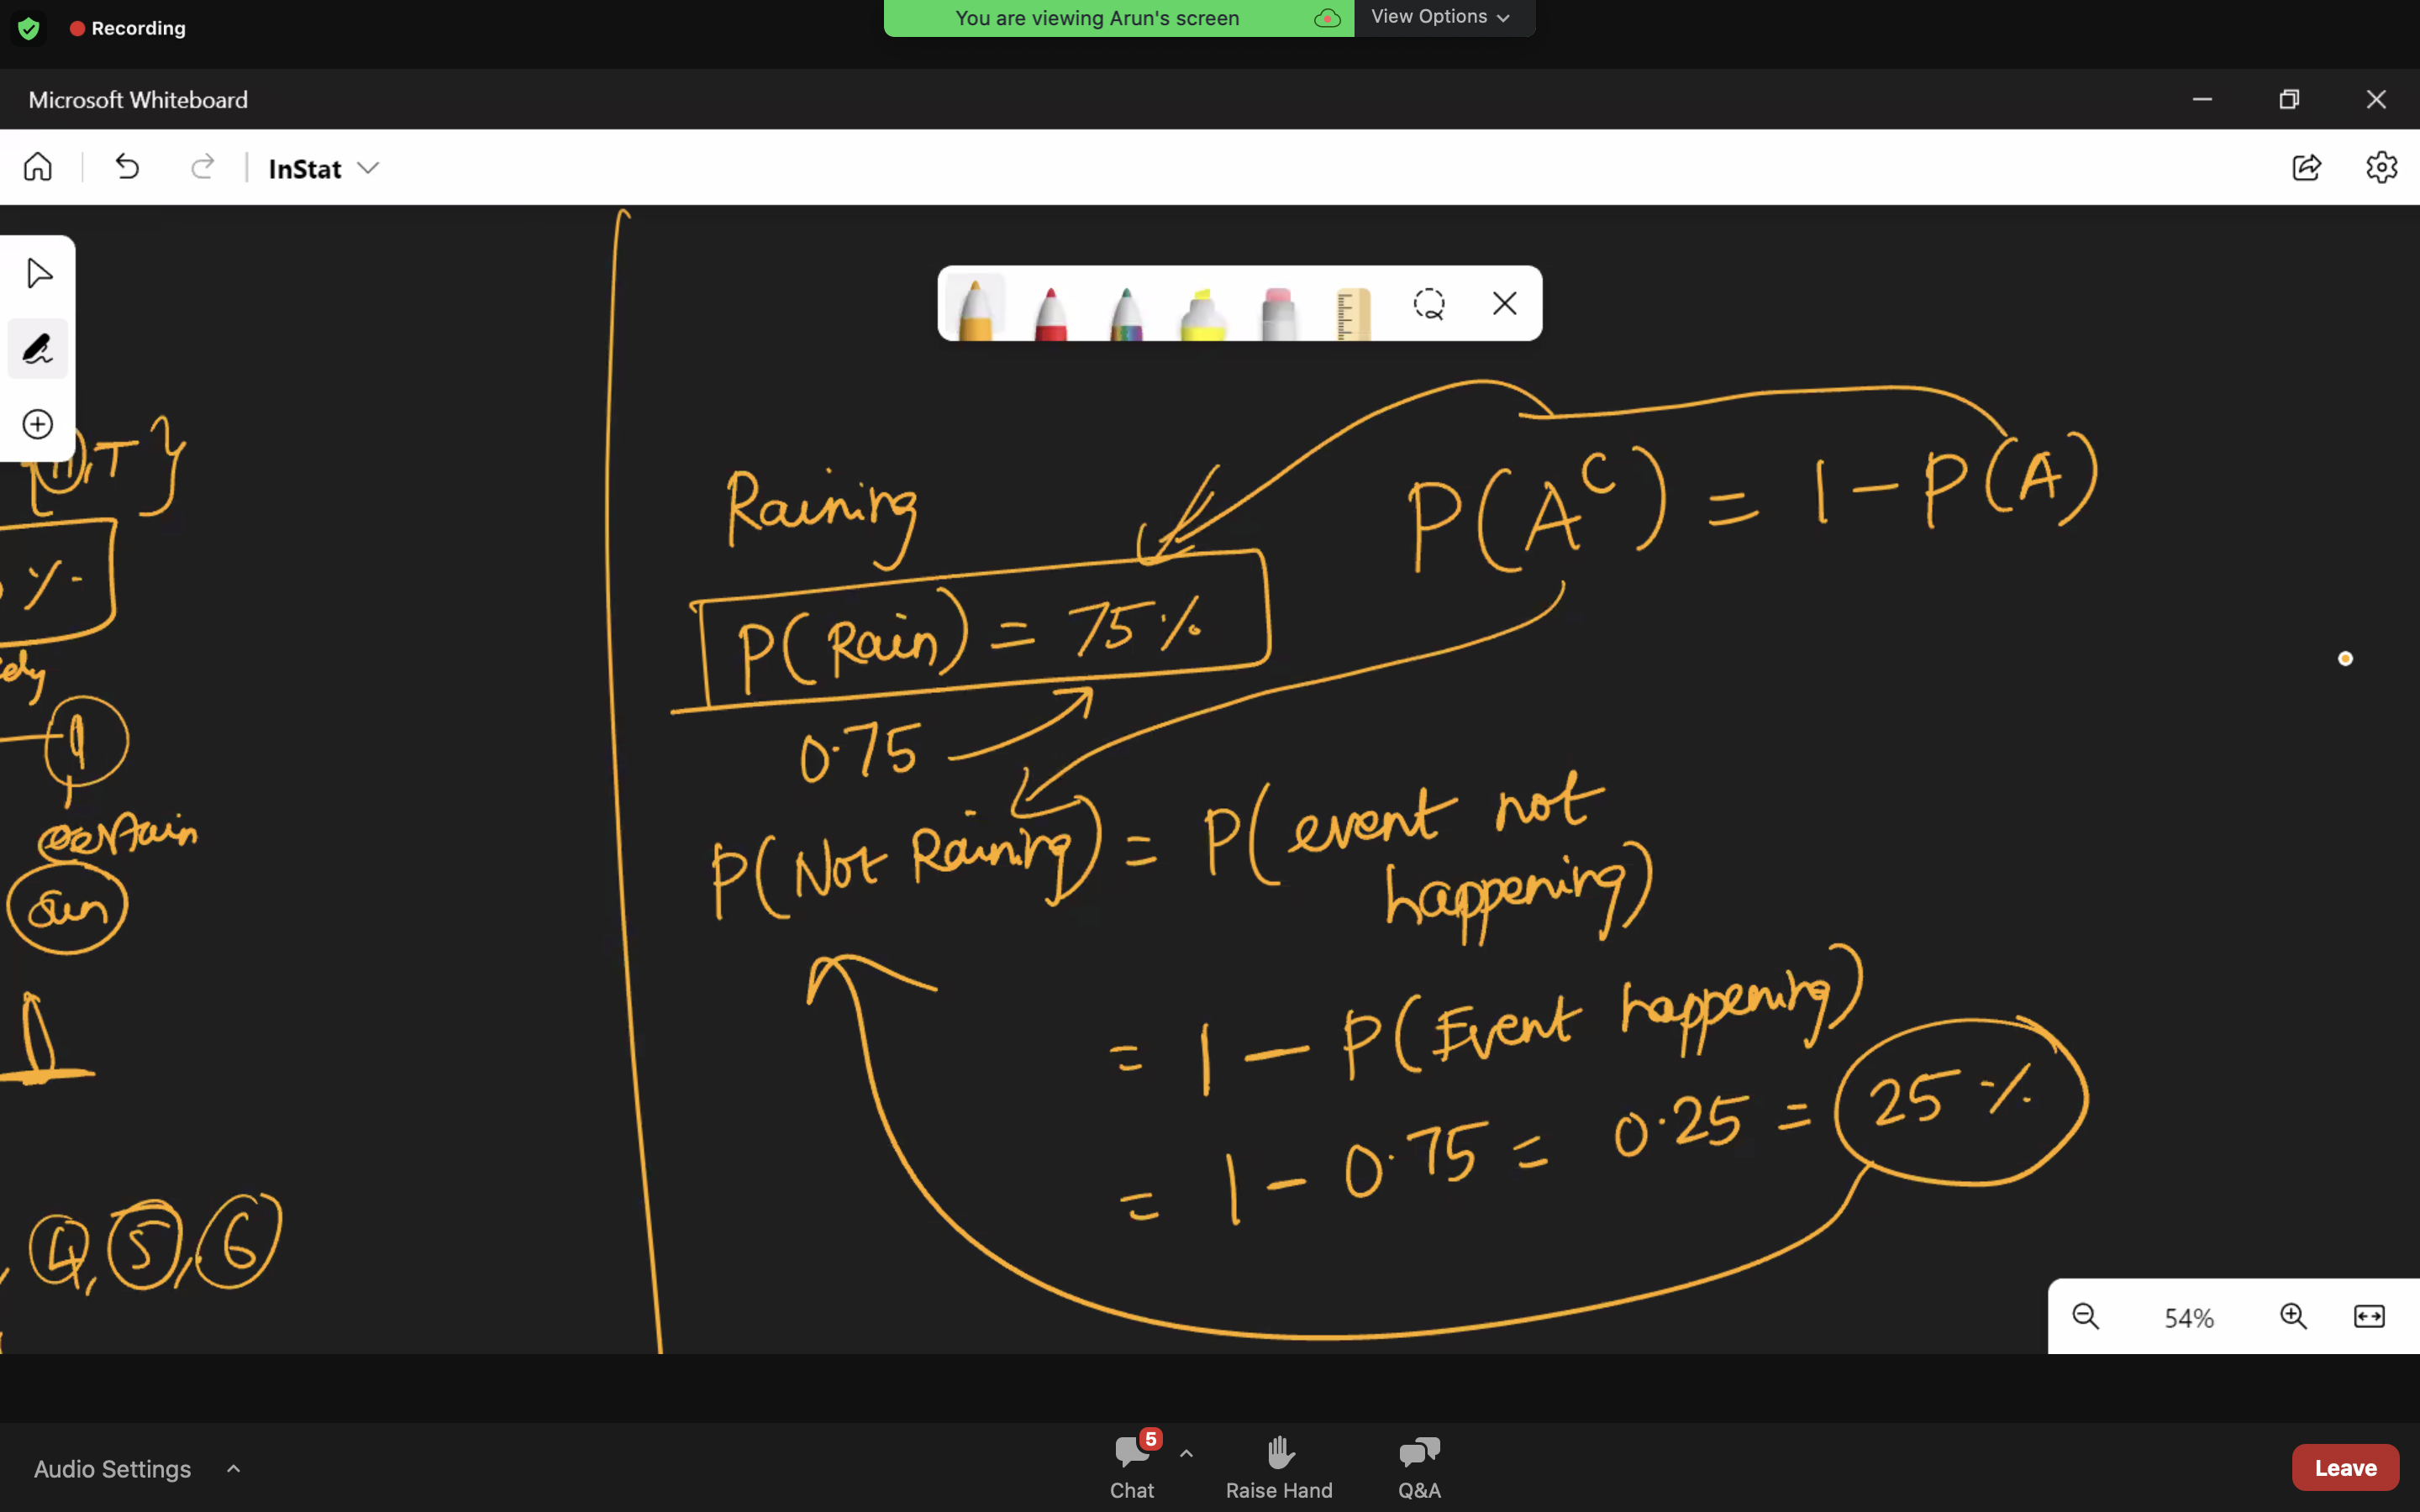 Recording
You are viewing Arun's screen
View Options
Microsoft Whiteboard
InStat
,T }
%
Certain
Sun
, 4, 5, 6
Raining
P(A^C) = 1 - P(A)
P(Rain) = 75%
0.75
P(Not Raining) = P(event not
happening)
= 1 - P(Event happening)
= 1 - 0.75 = 0.25 = 25%
54%
Audio Settings
5
Chat
Raise Hand
Q&A
Leave